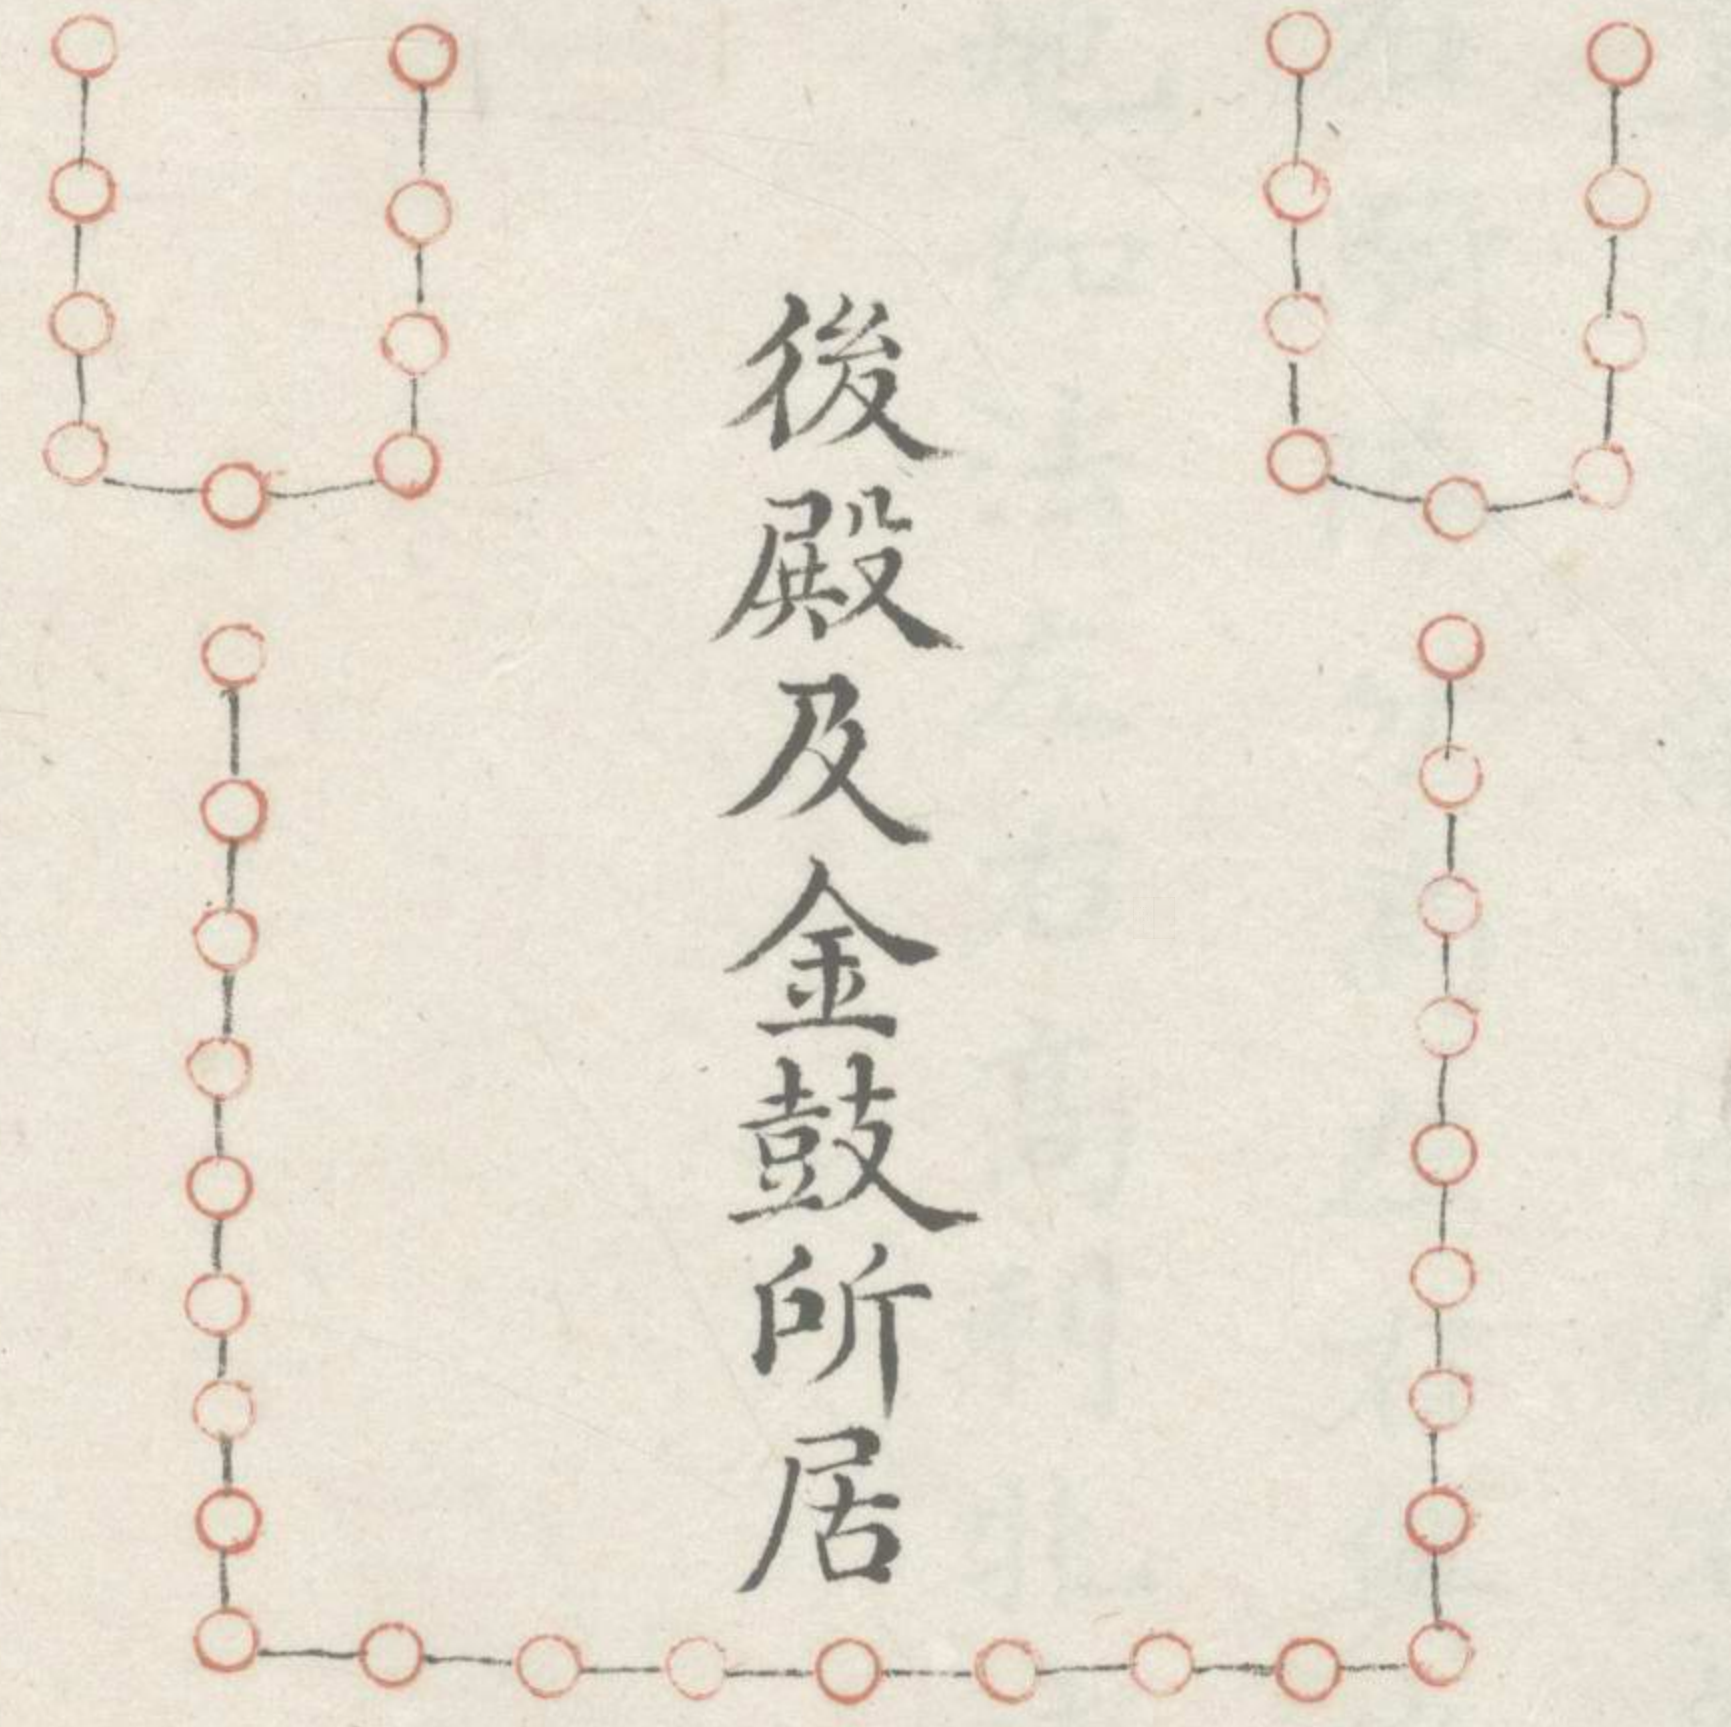 後殿及金鼓所居